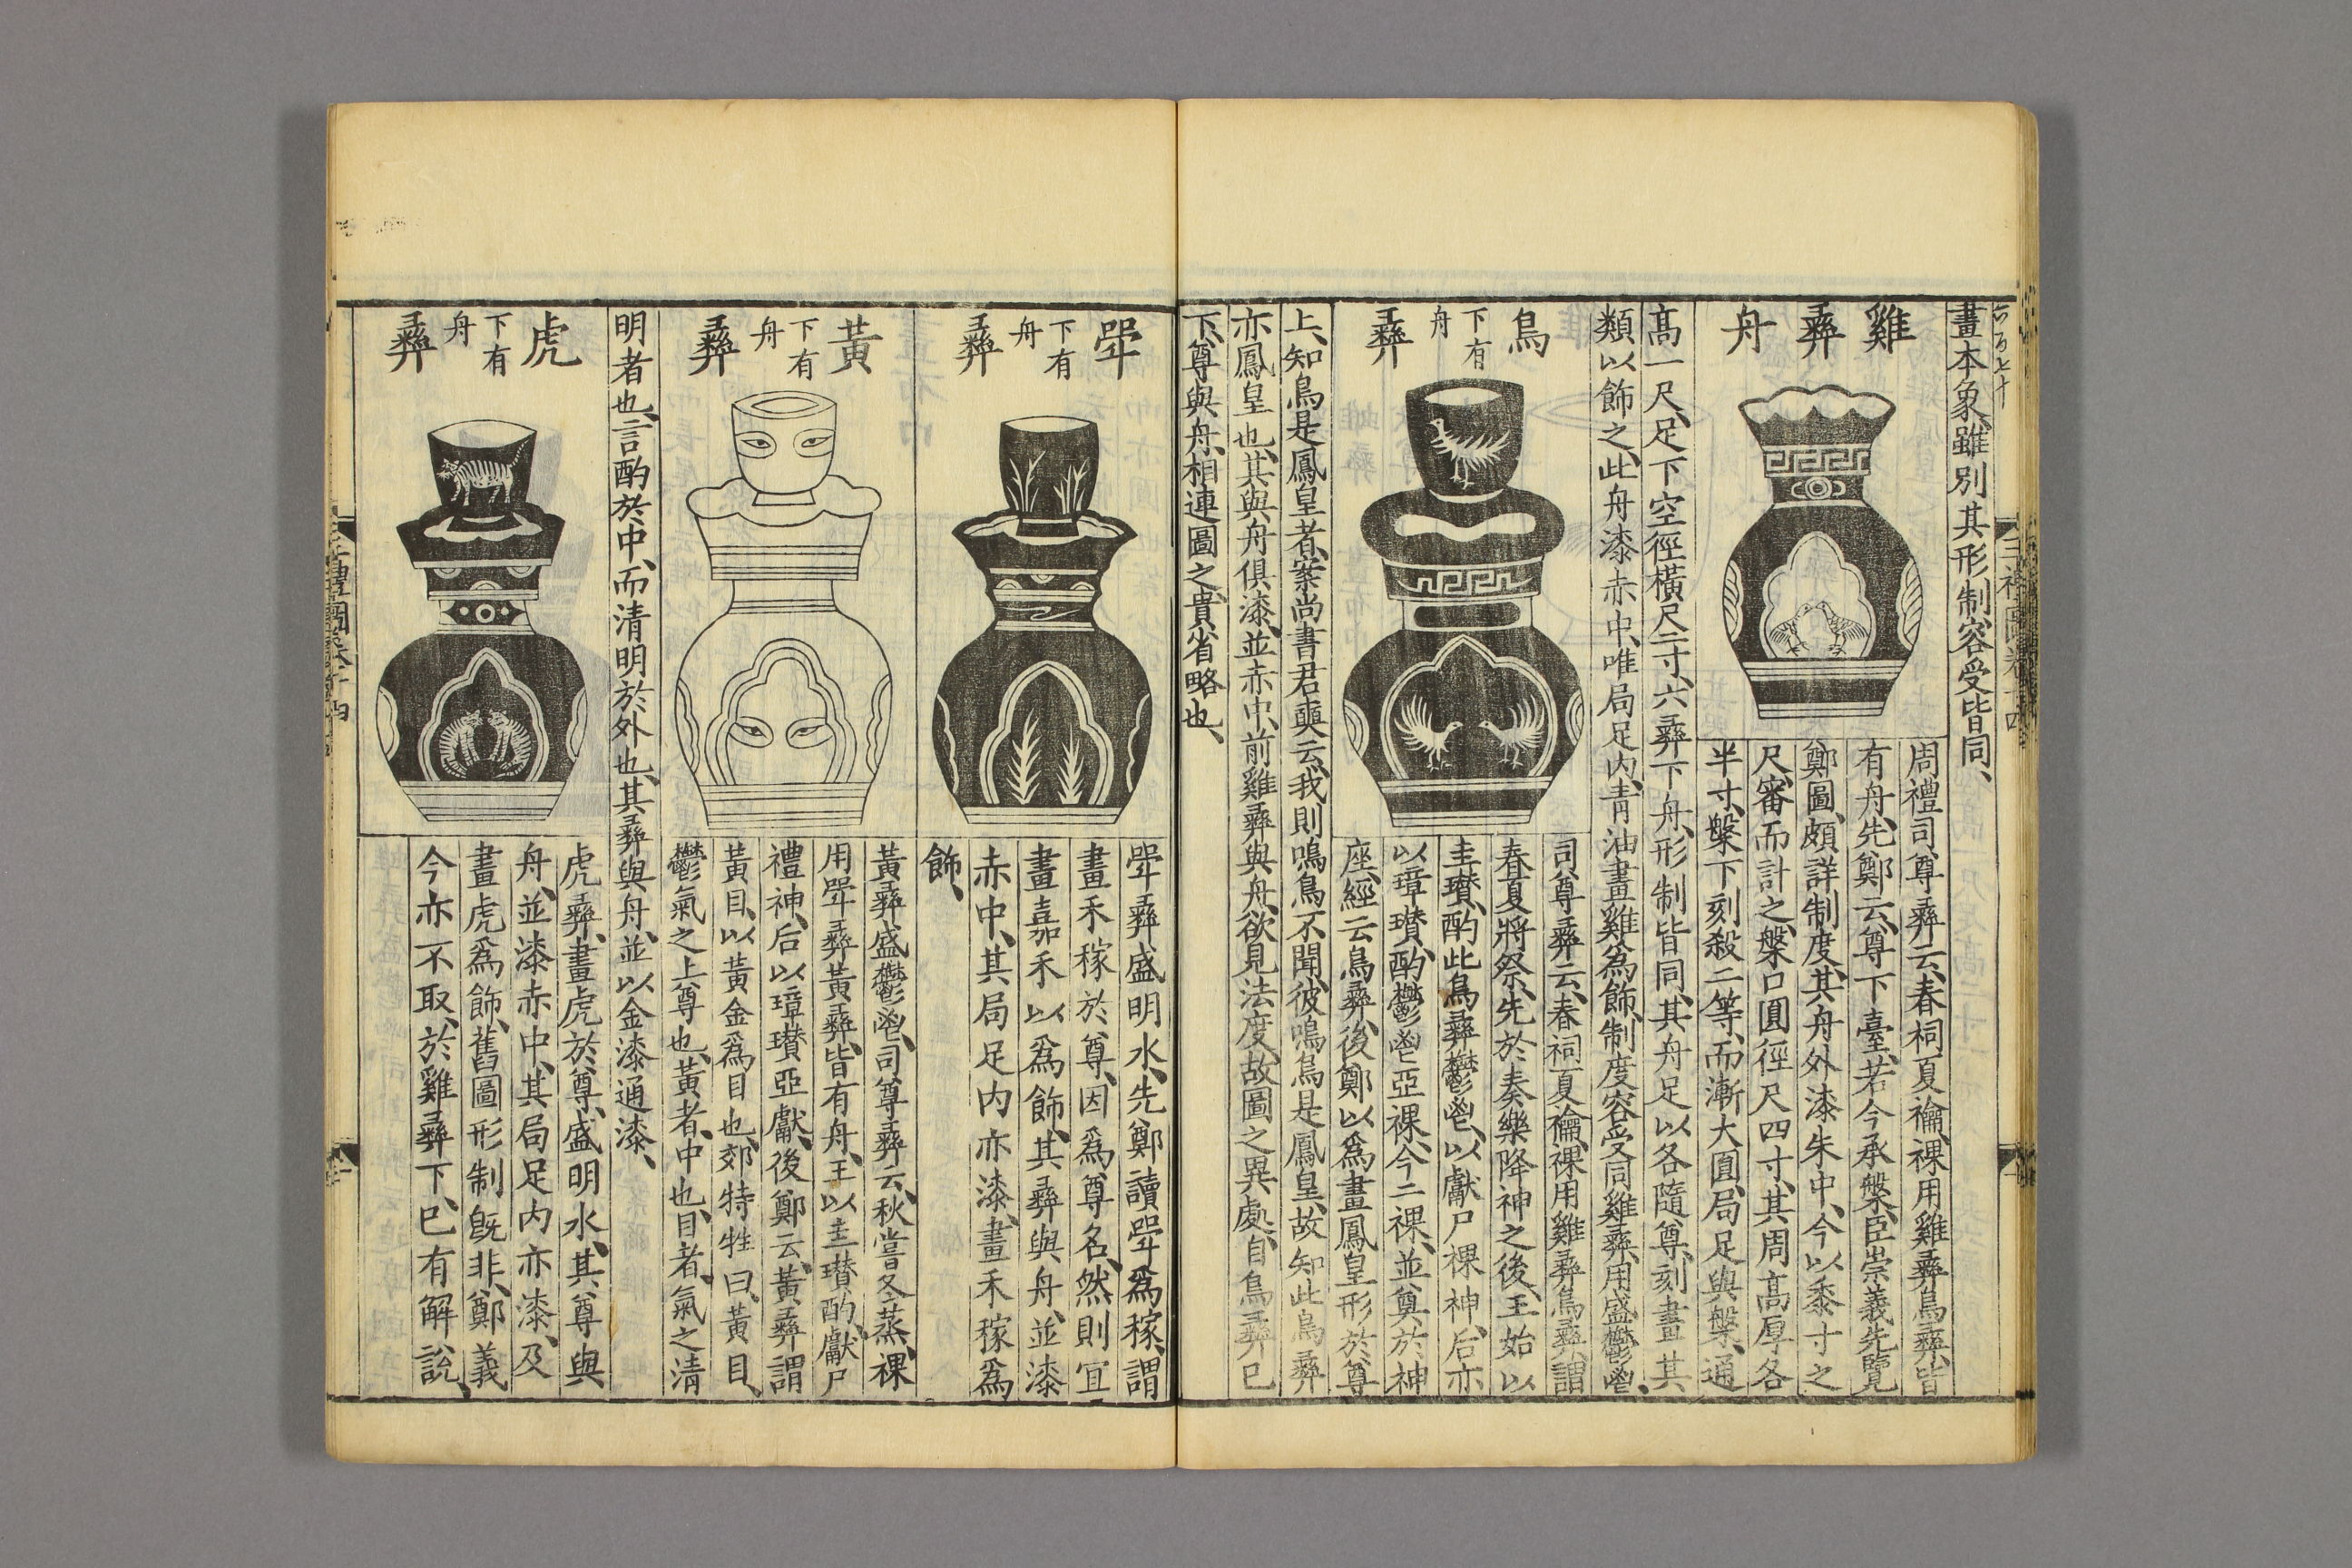 畫本象、雖別其形制、容受皆同、
雞彝舟
周禮司尊彝云、春祠夏禴、祼用雞彝鳥彝、皆
有舟、先鄭云、尊下臺、若今承槃、臣崇義先覽
鄭圖、頗詳制度、其舟外漆朱中、今以黍寸之
尺、審而計之、槃口圓徑尺四寸、其周高厚各
半寸、槃下刻殺二等、而漸大圓、局足與槃、通
高一尺、足下空徑橫尺二寸、六彝下舟、形制皆同、其舟足以各隨尊、刻畫其
類以飾之、此舟漆赤中、唯局足內、青油畫雞為飾、制度容受同雞彝、用盛鬱鬯、
鳥彝
下有
舟
司尊彝云、春祠夏禴、祼用雞彝鳥彝、謂
春夏將祭、先於奏樂降神之後、王始以
圭瓚、酌此鳥彝鬱鬯、以獻尸祼神、后亦
以璋瓚、酌鬱鬯亞祼、今二祼、並奠於神
座、經云鳥彝、後鄭以爲畫鳳皇形於尊
上、知鳥是鳳皇者、案尚書君奭云、我則鳴鳥不聞、彼鳴鳥是鳳皇、故知此鳥彝
亦鳳皇也、其與舟俱漆、並赤中、前雞彝與舟、欲見法度、故圖之異處、自鳥彝已
下、尊與舟、相連圖之、貴省略也、
斝彝
下有
舟
斝彝盛明水、先鄭讀斝爲稼、謂
畫禾稼於尊、因爲尊名、然則宜
畫嘉禾以爲飾、其彝與舟、並漆
赤中、其局足內亦漆、畫禾稼爲
飾、
黃彝
下有
舟
黃彝盛鬱鬯、司尊彝云、秋嘗冬蒸、祼
用斝彝黃彝、皆有舟、王以圭瓚酌、獻尸
禮神、后以璋瓚亞獻、後鄭云、黃彝謂
黃目、以黃金爲目也、郊特牲曰、黃目、
鬱氣之上尊也、黃者、中也、目者、氣之清
明者也、言酌於中、而清明於外也、其彝與舟、並以金漆通漆、
虎彝
下有
舟
虎彝、畫虎於尊、盛明水、其尊與
舟、並漆赤中、其局足內亦漆、及
畫虎爲飾、舊圖形制既非鄭義
今亦不取、於雞彝下、已有解說、